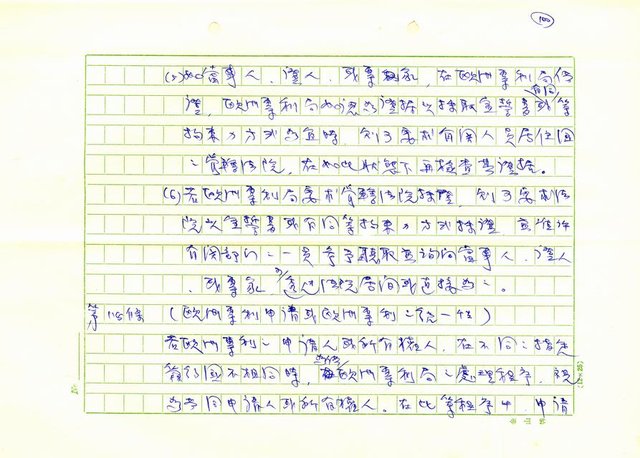 100
(5)如當事人、證人、或專家,在歐洲專利局作
證,歐洲專利局如認為證據以採取宣誓書或有同等
拘束力方式為宜時,則可要求有關人員居住國
之管轄法院,在如此狀態下再檢查其證據。
(6)若歐洲專利局要求管轄法院採證,則可要求法
院以宣誓書或有同等拘束力方式採證,並准許
有關部門之一員參予聽取並詢問當事人、證人
、或專家,可透過法院居間或直接為之。
第118條 (歐洲專利申請或歐洲專利之統一性)
若歐洲專利之申請人或所有權人,在不同之指定
締約國不相同時,為使歐洲專利局之處理程序,視
為共同申請人或所有權人。在此等程序中,申請
(12×25)